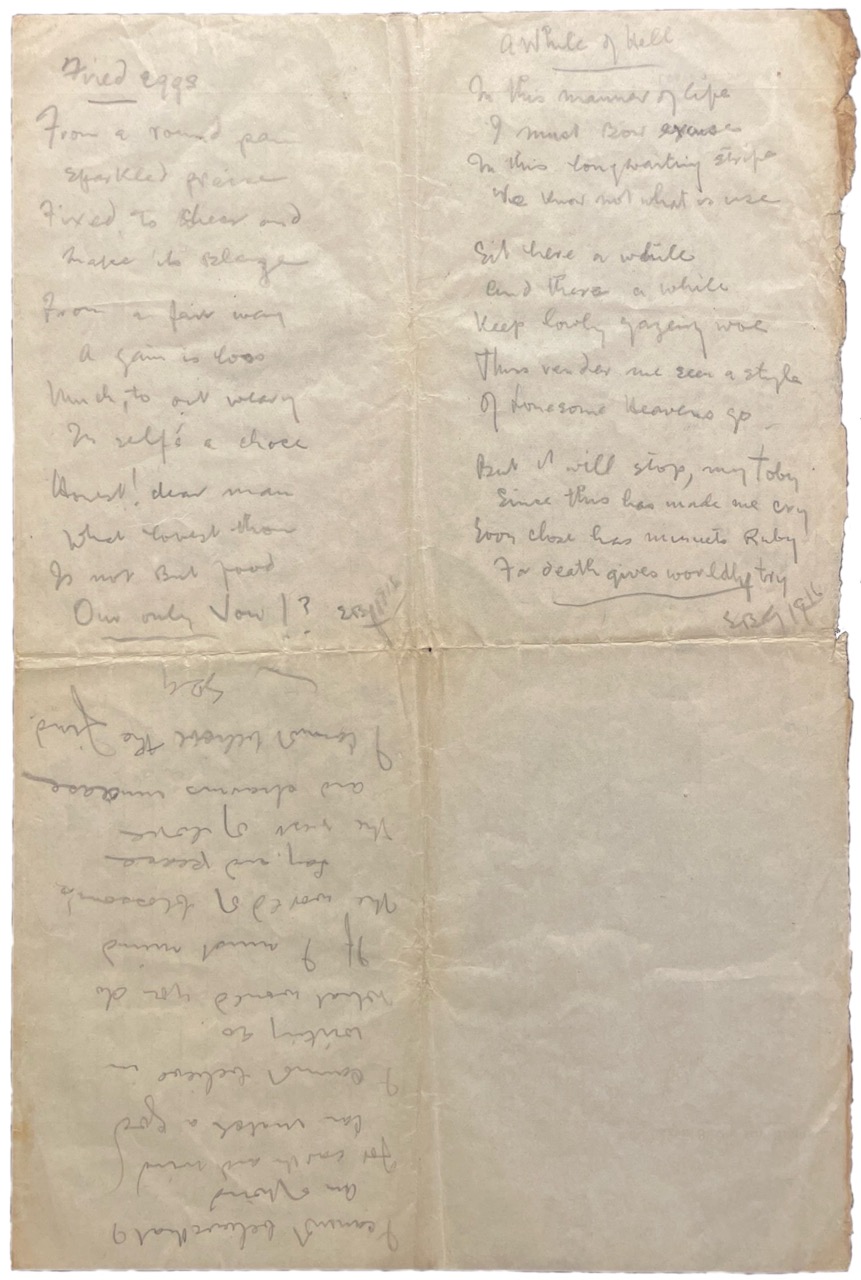 Fired eggs
From a round pan
Sparkled
Fixed to sheer and
shape its
From a fair way
A gain is loss
Much, to out weary
In self's a choce
Honest! dear man
What lovest thou
Is not But food
Our only Vow!?
A While of Hell
In this manner of life
I must Bow excuse
In this long waiting stripe
We know not what is use
Sit here a while
And there a while
Keep lowly gazeing woe
Thus render me seen a style
Of Lonesome Heavens go
But it will stop, my Toby
Since this has made me cry
Soon close has minuets Ruby
For death gives worldly try
EBG 1916
I cannot believe that I
an
for earth and mind
can match a god
I cannot believe in
writing so
what would you do
If I must mind
the world of blossom's
Joy and peace
the rest of love
and charms
I cannot believe the find